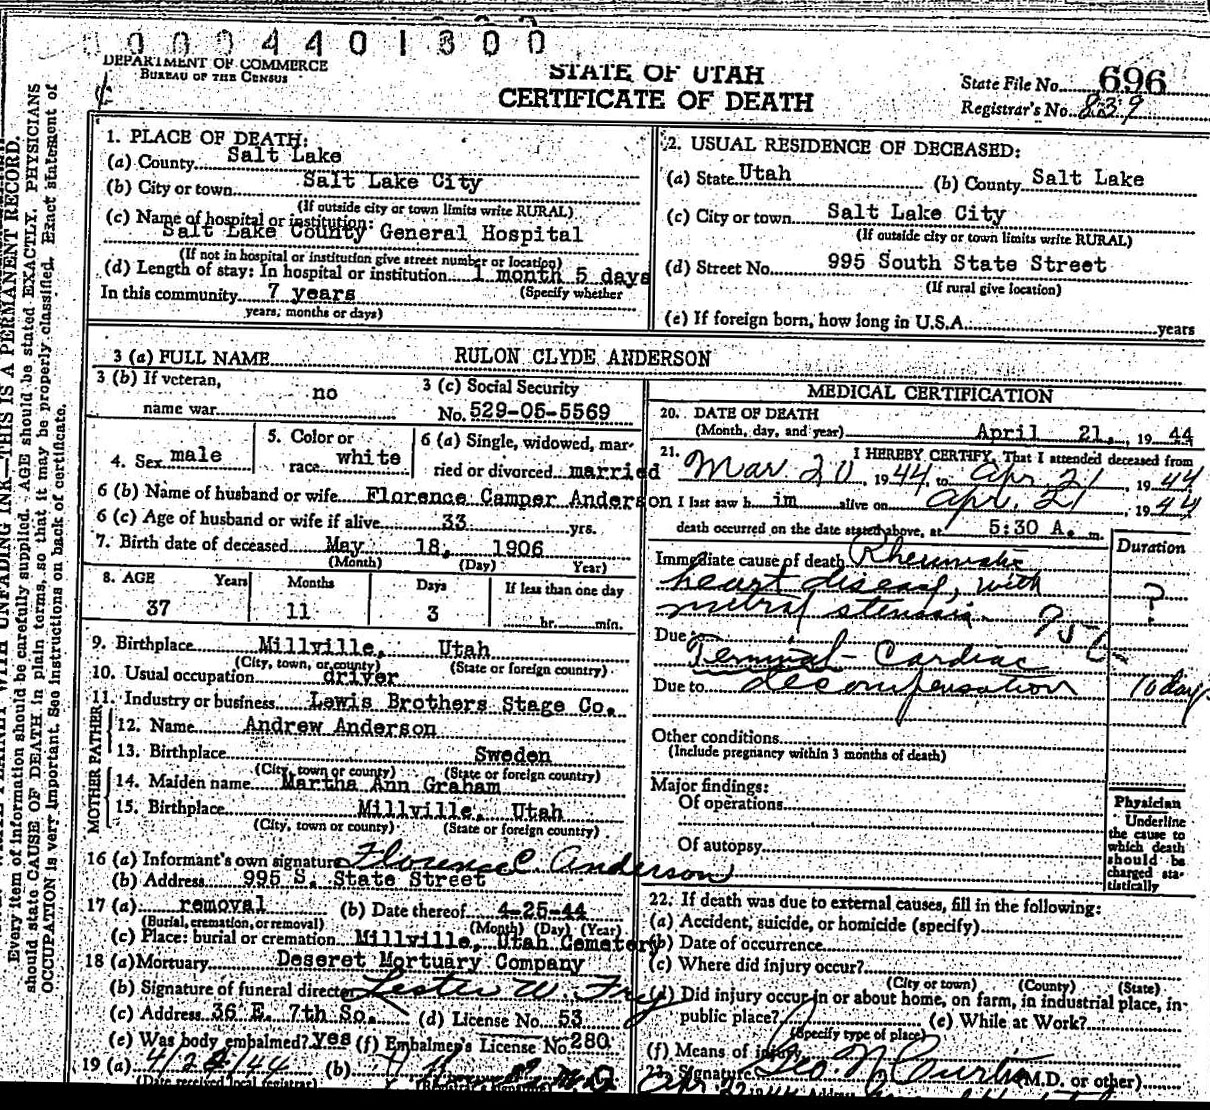 0 0 0 4 4 0 1 3 0 0
DEPARTMENT OF COMMERCE
BUREAU OF THE CENSUS
STATE OF UTAH
CERTIFICATE OF DEATH
State File No. 696
Registrar's No. 839
Every item of information should be carefully supplied. AGE should be stated EXACTLY. PHYSICIANS
should state CAUSE OF DEATH in plain terms, so that it may be properly classified. Exact statement of
OCCUPATION is very important. See instructions on back of certificate.
UNFADING INK—THIS IS A PERMANENT RECORD.
1. PLACE OF DEATH:
(a) County Salt Lake
(b) City or town Salt Lake City
(If outside city or town limits write RURAL)
(c) Name of hospital or institution:
Salt Lake County General Hospital
(If not in hospital or institution give street number or location)
(d) Length of stay: In hospital or institution 1 month 5 days
In this community 7 years (Specify whether
years, months or days)
2. USUAL RESIDENCE OF DECEASED:
(a) State Utah (b) County Salt Lake
(c) City or town Salt Lake City
(If outside city or town limits write RURAL)
(d) Street No. 995 South State Street
(If rural give location)
(e) If foreign born, how long in U.S.A. years
3 (a) FULL NAME RULON CLYDE ANDERSON
3 (b) If veteran, name war no
3 (c) Social Security No. 529-05-5569
4. Sex male
5. Color or race white
6 (a) Single, widowed, married or divorced married
6 (b) Name of husband or wife Florence Camper Anderson
6 (c) Age of husband or wife if alive 33 yrs.
7. Birth date of deceased May 18, 1906
(Month) (Day) Year)
8. AGE Years Months Days If less than one day
37 11 3 hr. min.
9. Birthplace Millville, Utah
(City, town, or county) (State or foreign country)
10. Usual occupation driver
11. Industry or business Lewis Brothers Stage Co.
FATHER
12. Name Andrew Anderson
13. Birthplace Sweden
(City, town or county) (State or foreign country)
MOTHER
14. Maiden name Martha Ann Graham
15. Birthplace Millville, Utah
(City, town or county) (State or foreign country)
16 (a) Informant's own signature Florence C. Anderson
(b) Address 995 S. State Street
17 (a) removal (b) Date thereof 4-25-44
(Burial, cremation, or removal) (Month) (Day) (Year)
(c) Place: burial or cremation Millville, Utah Cemetery
18 (a) Mortuary Deseret Mortuary Company
(b) Signature of funeral director Lester W. Fry
(c) Address 36 E. 7th So. (d) License No. 53
(e) Was body embalmed? yes (f) Embalmer's License No. 280
19 (a) 4/24/44 (b)
(Date received local registrar)
MEDICAL CERTIFICATION
20. DATE OF DEATH
(Month, day, and year) April 21, 1944
21. I HEREBY CERTIFY, That I attended deceased from
Mar 20 1944, to Apr. 21, 1944
I last saw h im alive on Apr. 21 1944
death occurred on the date stated above, at 5:30 A. m.
Duration
Immediate cause of death Rheumatic
heart disease, with ?
mitral stenosis.
Due to
Terminal - Cardiac
Due to decompensation 10 days
Other conditions
(Include pregnancy within 3 months of death)
Major findings:
Of operations
Of autopsy
Physician
Underline
the cause to
which death
should be
charged sta-
tistically
22. If death was due to external causes, fill in the following:
(a) Accident, suicide, or homicide (specify)
(b) Date of occurrence
(c) Where did injury occur?
(City or town) (County) (State)
(d) Did injury occur in or about home, on farm, in industrial place, in
public place? (e) While at Work?
(Specify type of place)
(f) Means of injury
23. Signature Geo. N. Curtis (M.D. or other)
Apr 22 1944 Address